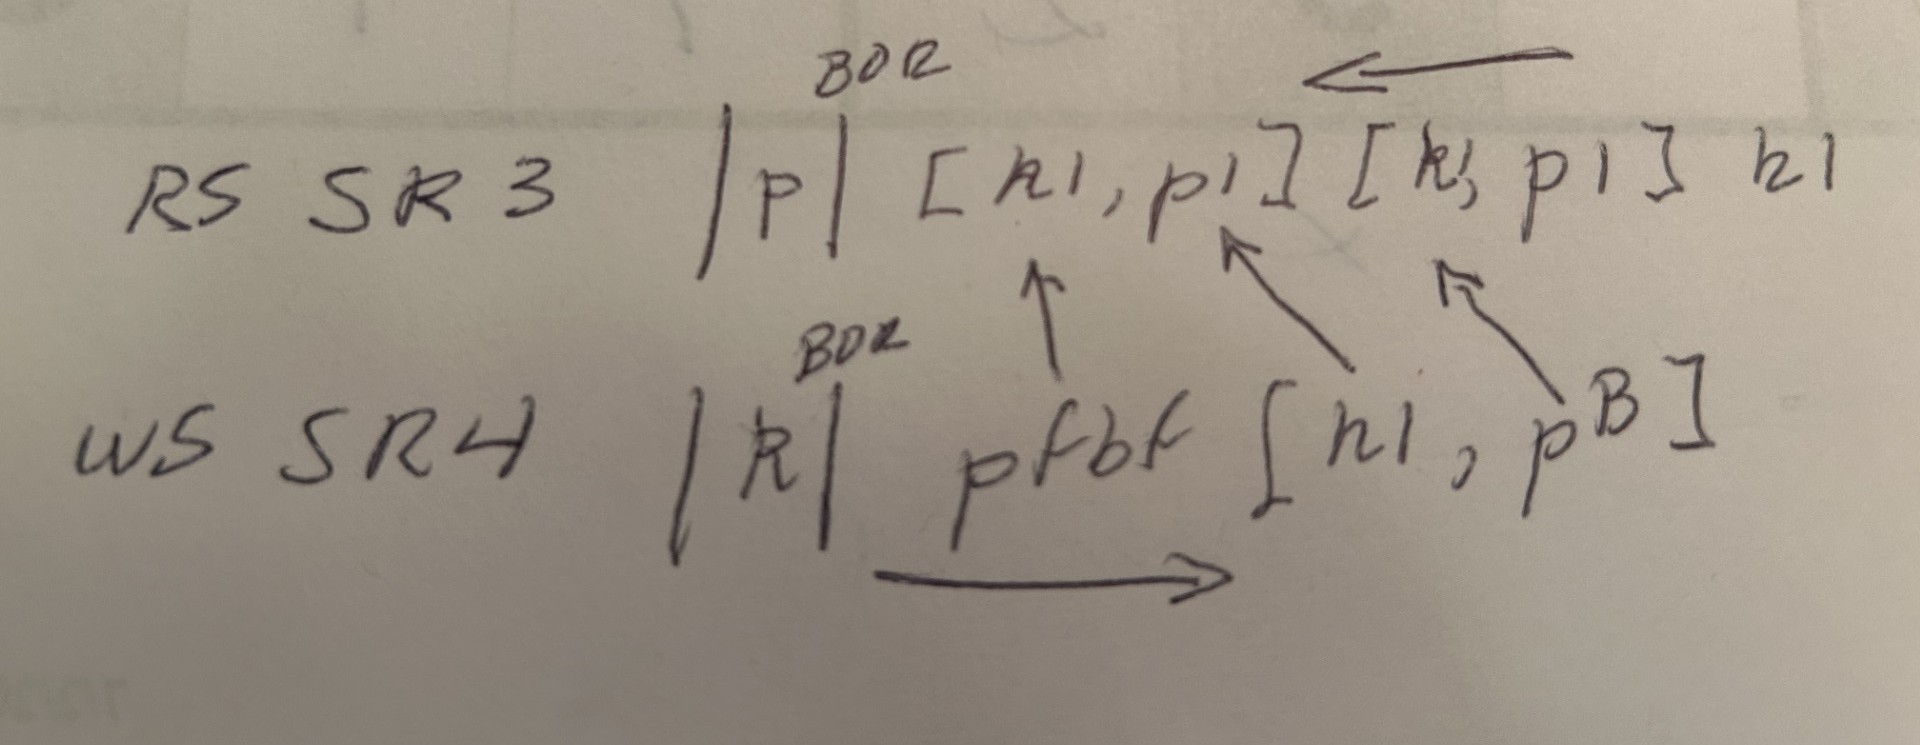 BOR
RS SR 3 |p| [k1, p1] [k1, p1] k1
BOR
WS SR4 |k| pfbf [k1, pB]